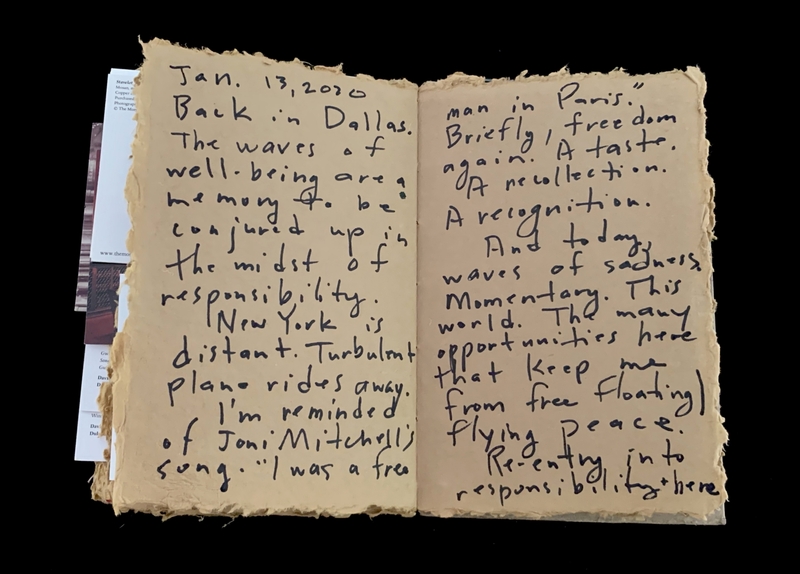 Jan. 13, 2020
Back in Dallas.
The waves of
well-being are a
memory to be
conjured up in
the midst of
responsibility.
New York is
distant. Turbulent
plane rides away.
I'm reminded
of Joni Mitchell's
song. "I was a free
man in Paris."
Briefly, freedom
again. A taste.
A recollection.
A recognition.
And today,
waves of sadness.
Momentary. This
world. The many
opportunities here
that keep me
from free floating/
flying peace.
Re-entry into
responsibility + here